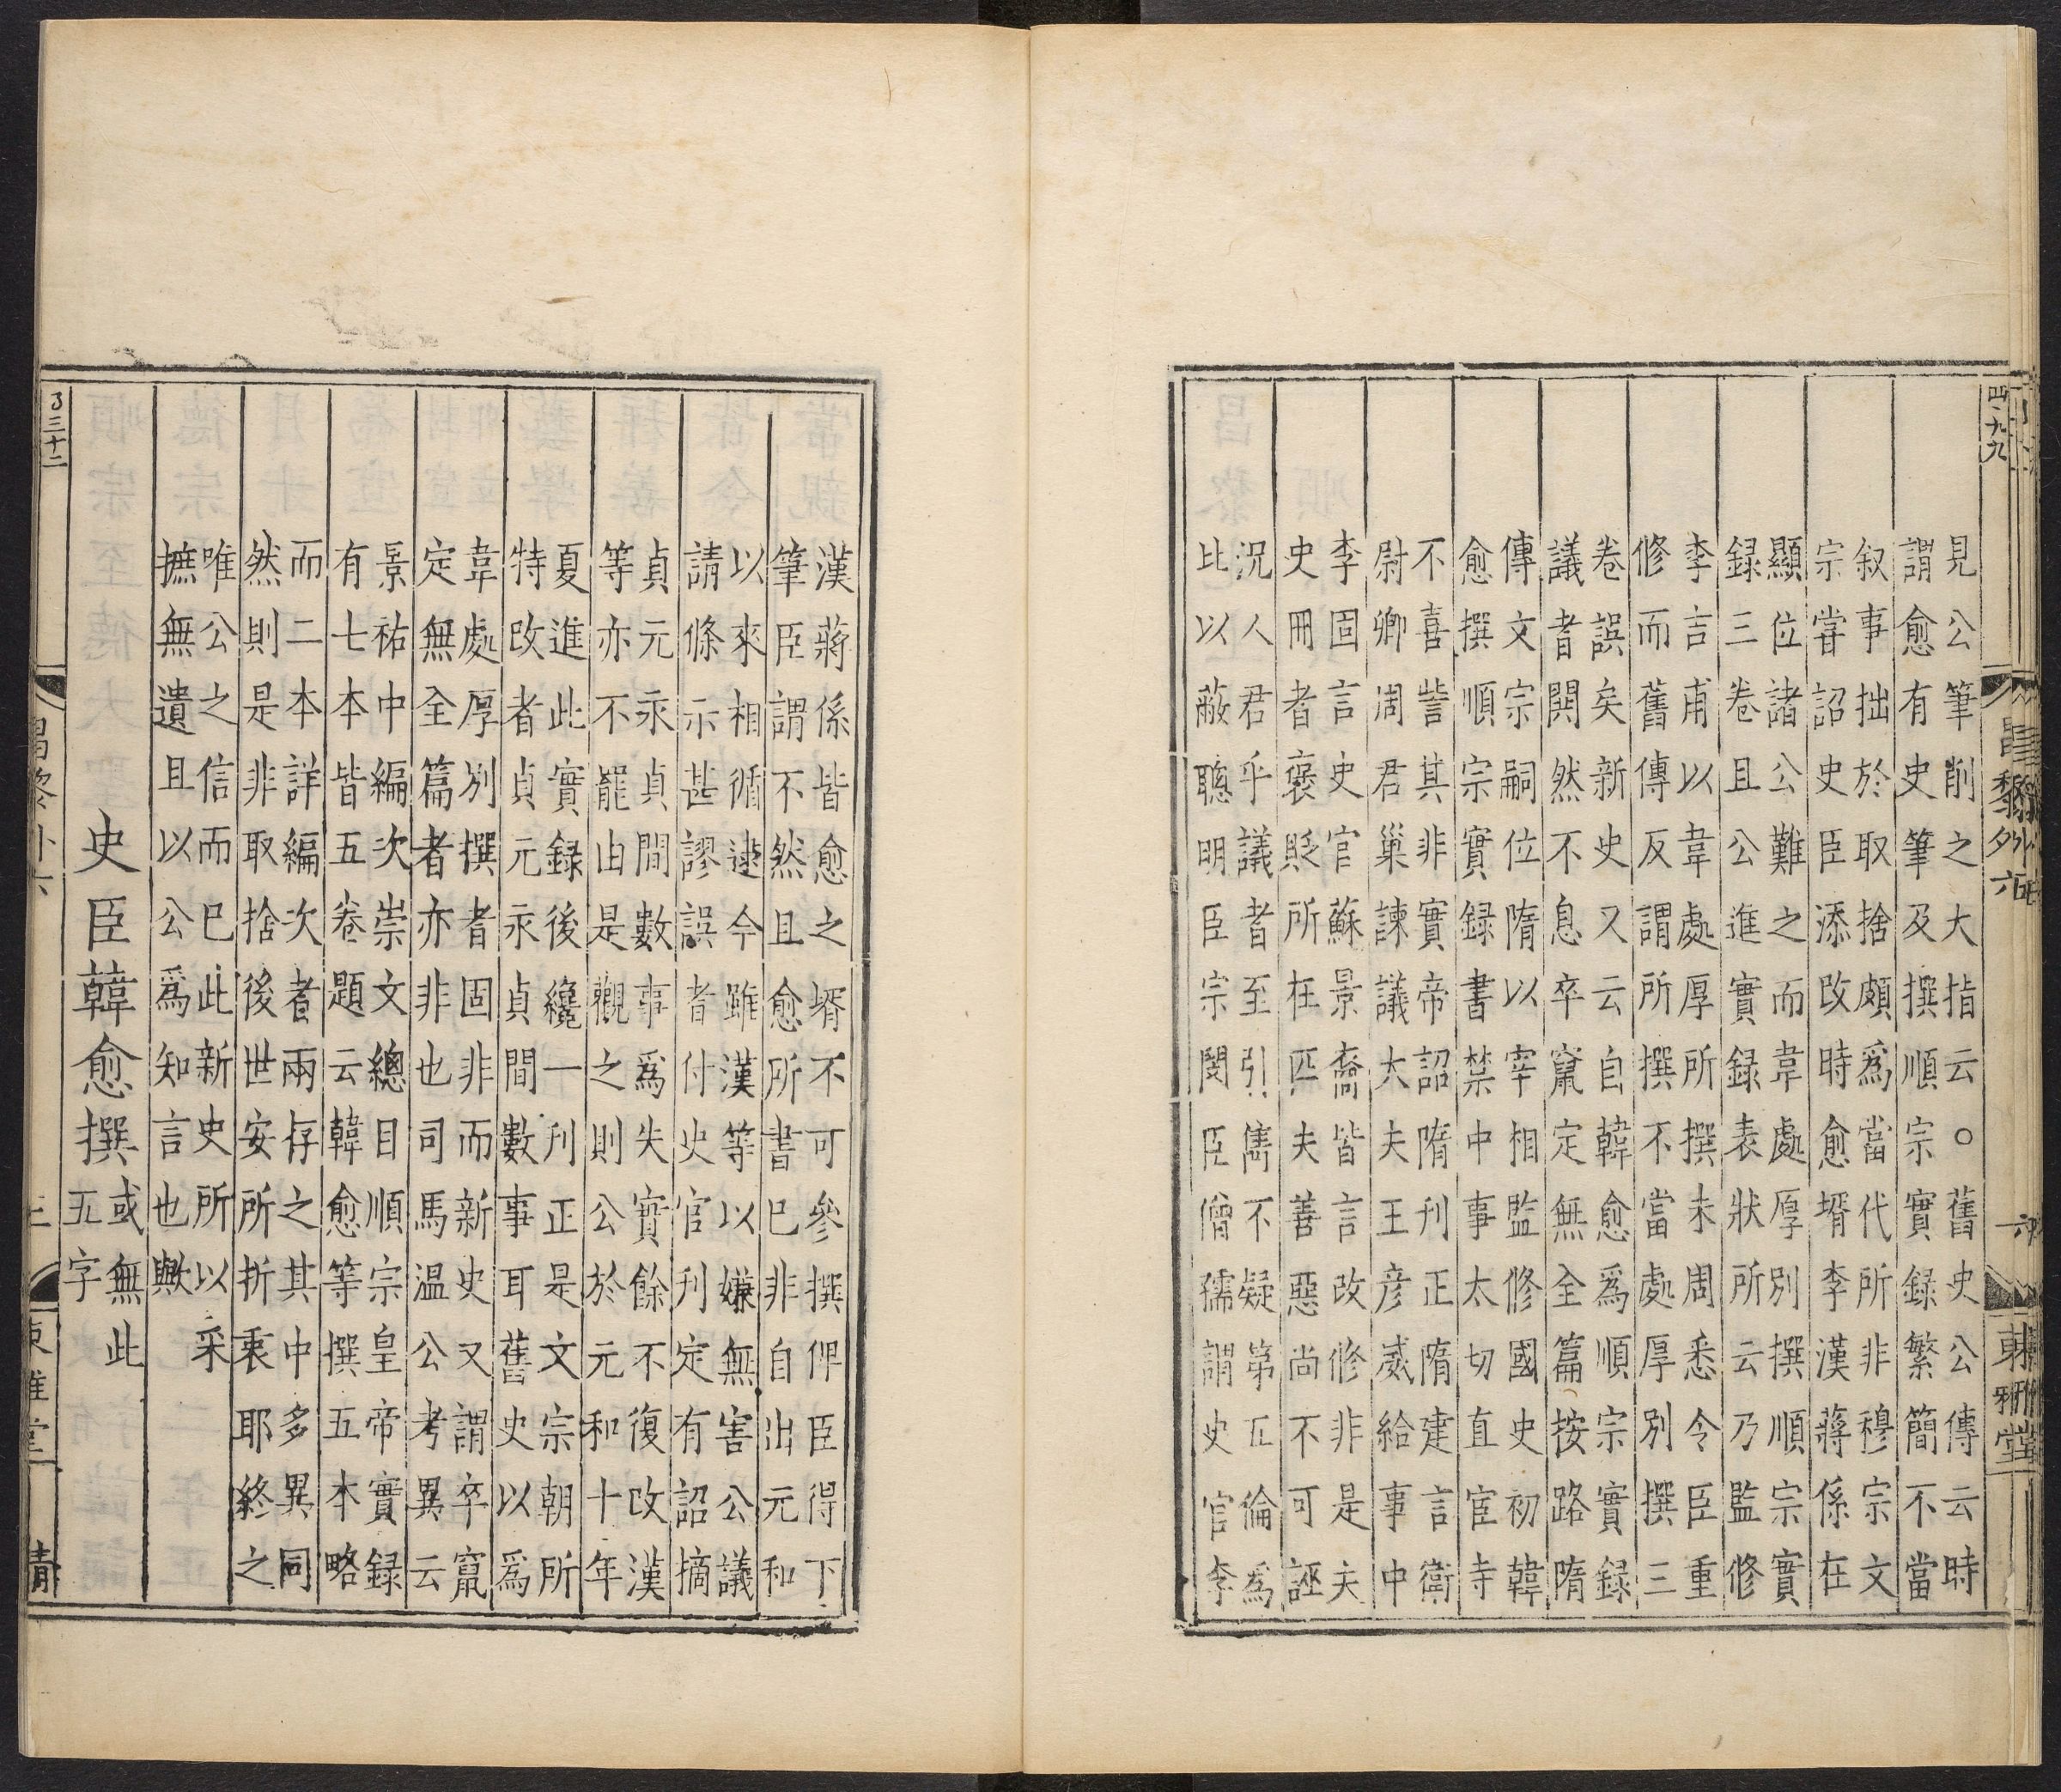 見公筆削之大指云○舊史公傳云時
謂愈有史筆及撰順宗實録繁簡不當
叙事拙於取捨頗爲當代所非穆宗文
宗甞詔史臣添改時愈壻李漢蔣係在
顯位諸公難之而韋處厚別撰順宗實
録三卷且公進實録表狀所云乃監修
李吉甫以韋處厚所撰未周悉令臣重
修而舊傳反謂所撰不當處厚別撰三
卷誤矣新史又云自韓愈爲順宗實録
議者閧然不息卒竄定無全篇按路隋
傳文宗嗣位隋以宰相監修國史初韓
愈撰順宗實録書禁中事太切直宦寺
不喜訾其非實帝詔隋刊正隋建言衛
尉卿周君巢諫議大夫王彦威給事中
李固言史官蘇景裔皆言改修非是夫
史冊者褒貶所在匹夫善惡尚不可誣
況人君乎議者至引雋不疑第五倫爲
比以蔽聰明臣宗閔臣僧孺謂史官李
昌黎外六
六
東雅堂
漢蔣係皆愈之壻不可參撰俾臣得下
筆臣謂不然且愈所書已非自出元和
以來相循逮今雖漢等以嫌無害公議
請條示甚謬誤者付史官刊定有詔摘
貞元永貞間數事爲失實餘不復改漢
等亦不罷由是觀之則公於元和十年
夏進此實録後纔一刊正是文宗朝所
特改者貞元永貞間數事耳舊史以爲
韋處厚別撰者固非而新史又謂卒竄
定無全篇者亦非也司馬温公考異云
景祐中編次崇文總目順宗皇帝實録
有七本皆五卷題云韓愈等撰五本略
而二本詳編次者兩存之其中多異同
然則是非取捨後世安所折衷耶終之
唯公之信而已此新史所以采
摭無遺且以公爲知言也歟
史臣韓愈撰或無此
五字
昌黎外六
東雅堂